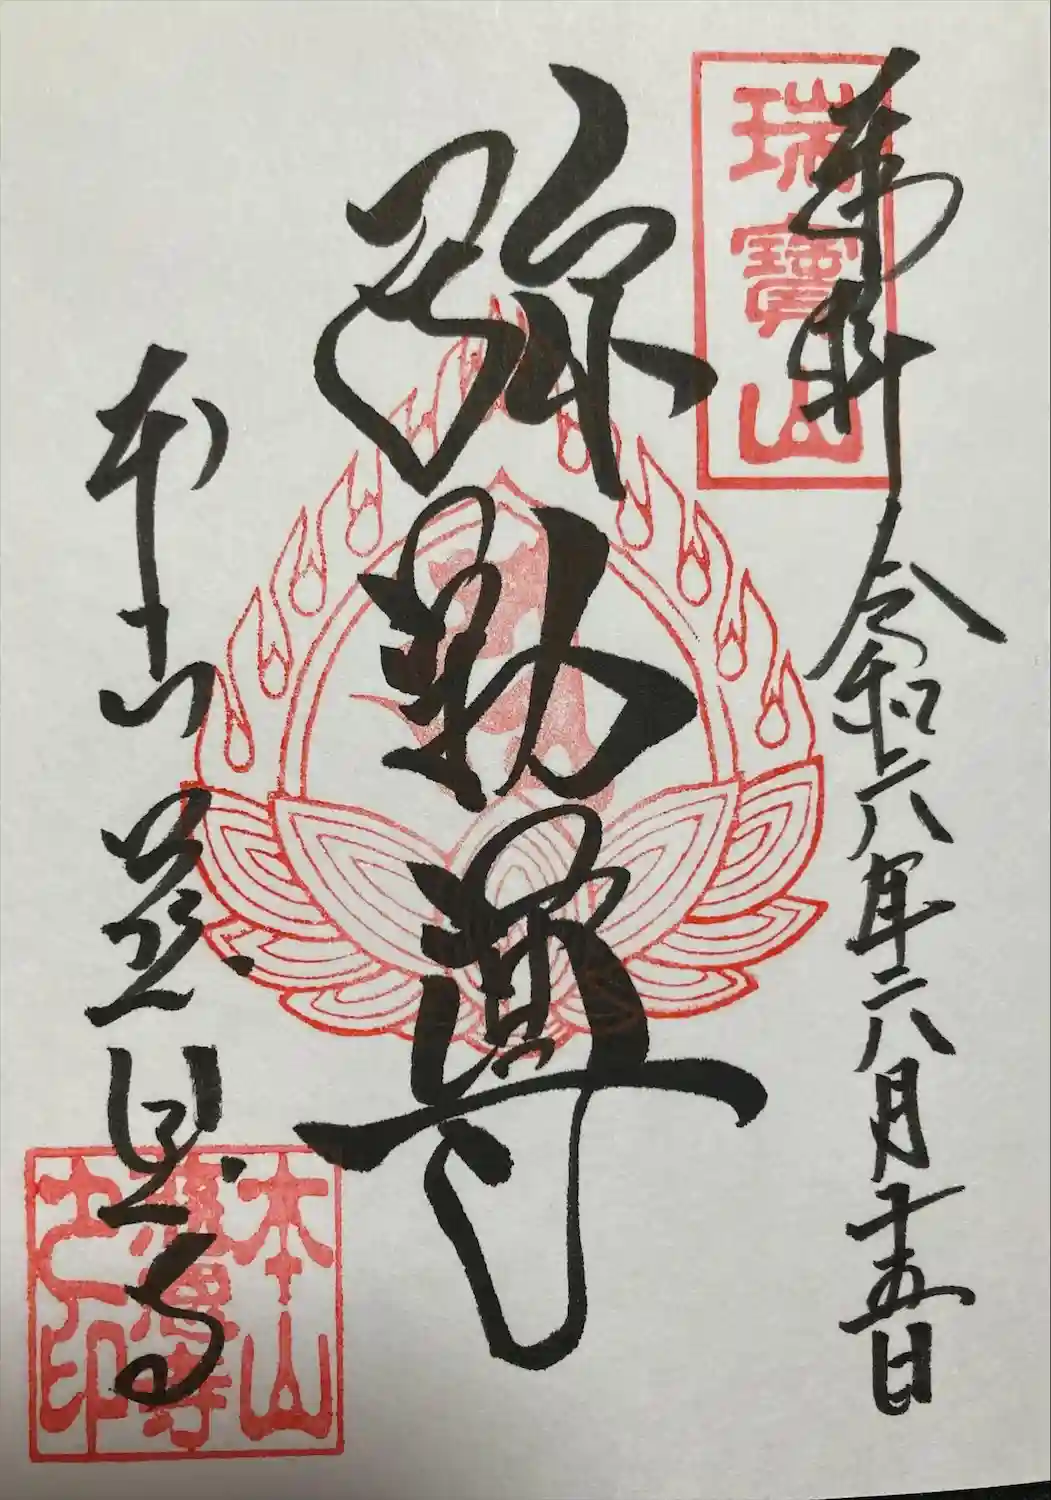 瑞寶山
奉拝
令和六年六月十五日
弥勒尊
本山慈恩寺
本山
慈恩寺
之印